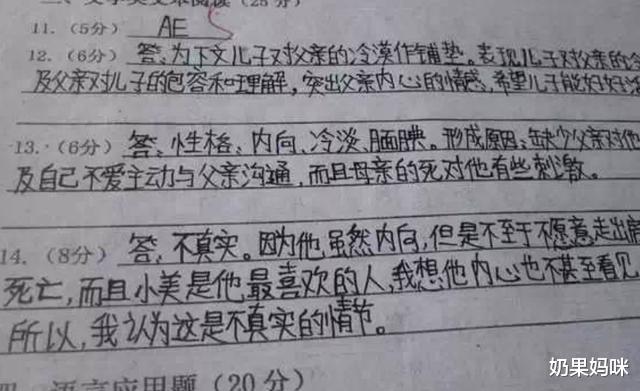 11.（5分） AE
12.（6分） 答：为下文儿子对父亲的冷漠作铺垫。表现儿子对父亲的
及父亲对儿子的包容和理解，突出父亲内心的情感，希望儿子能好好
13.（6分） 答：性格：内向、冷淡、腼腆。形成原因：缺少父亲对他
及自己不爱主动与父亲沟通，而且母亲的死对他有些刺激。
14.（8分） 答，不真实。因为他虽然内向，但是不至于不愿意走出
死亡，而且小美是他最喜欢的人，我想他内心也不甚至看见
所以，我认为这是不真实的情节。
语言应用题（20分）
奶果妈咪